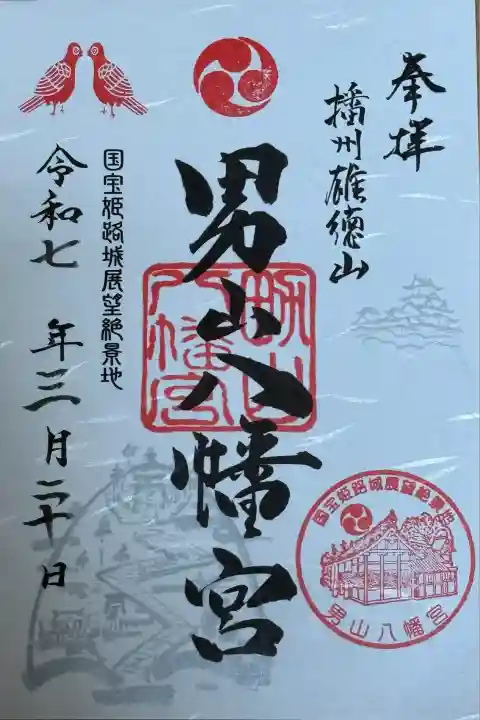 奉拝
播州雄徳山
男山八幡宮
男山
八幡宮
国宝姫路城展望絶景地
令和七年三月二十日
国宝姫路城展望絶景地
男山八幡宮